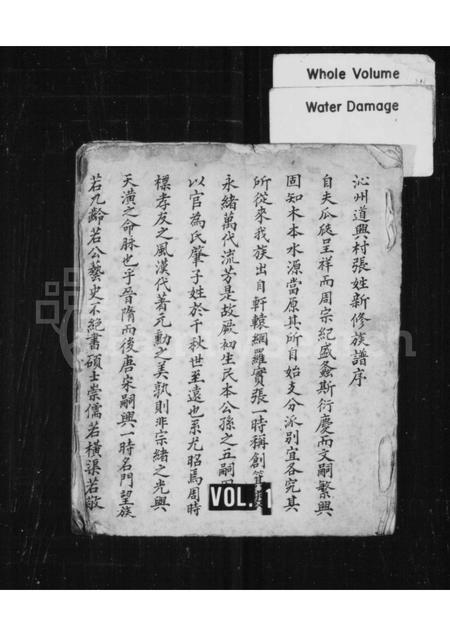 Whole Volume
Water Damage
沁州道興村張姓新修族譜序
自夫瓜瓞呈祥而周宗紀盛螽斯衍慶而文嗣繁興
固知木本水源當原其所自始支分派別宜各究其
所從來我族出自軒轅網羅實張一時稱創
永緒萬代流芳是故厥初生民本公孫之五嗣
以官為氏肇子姓於千秋世至遠也系尤昭焉周時
標孝友之風漢代著元勳之美孰則非宗緒之光與
天潢之命脉也乎晉隋而後唐宋嗣興一時名門望族
若九齡若公藝史不絕書碩士崇儒若橫渠若敬
VOL. 1